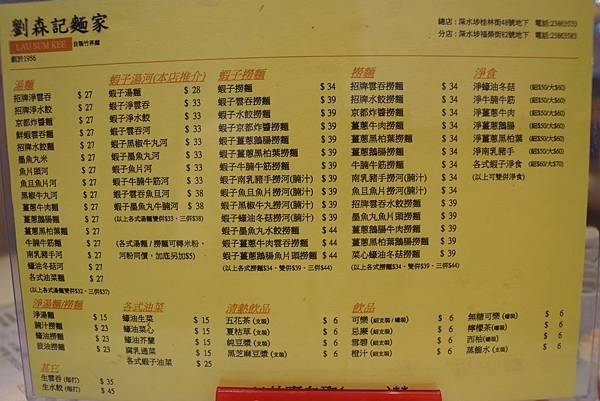 劉森記麵家
LAU SUM KEE 自製竹昇麵
創於1956
總店：深水埗桂林街48號地下 電話:23863533
分店：深水埗福榮街82號地下 電話:23863583
湯麵
招牌淨雲吞 $ 27
招牌淨水餃 $ 27
京都炸醬麵 $ 27
鮮蝦雲吞麵 $ 27
招牌水餃麵 $ 27
墨魚丸米 $ 27
魚片頭河 $ 27
魚旦魚片河 $ 27
黑椒牛丸河 $ 27
薑蔥牛肉麵 $ 27
薑蔥鵝腸麵 $ 27
薑蔥黑柏葉麵 $ 27
牛腩牛筋麵 $ 27
南乳豬手河 $ 27
蠔油冬菇河 $ 27
各式油菜麵 $ 27
(以上各式湯麵雙併$32、三併$37)
淨湯麵/撈麵
淨湯麵 $ 15
腩汁撈麵 $ 23
蠔油撈麵 $ 23
豉油撈麵 $ 23
其它
生雲吞 (每打) $ 35
生水餃 (每打) $ 45
蝦子湯河(本店推介)
蝦子湯麵 $ 28
蝦子淨雲吞 $ 33
蝦子淨水餃 $ 33
蝦子雲吞河 $ 33
蝦子黑椒牛丸河 $ 33
蝦子墨魚丸河 $ 33
蝦子魚片河 $ 33
蝦子牛腩牛筋河 $ 33
蝦子雲吞魚旦河 $ 38
蝦子墨魚丸牛腩河 $ 38
(以上各式湯麵雙併$33、三併$38)
(各式湯麵 / 撈麵可轉米粉，
河粉同價，加底另加$5)
各式油菜
蠔油生菜 $ 15
蠔油菜心 $ 15
蠔油芥蘭 $ 15
腐乳通菜 $ 15
各式蝦子油菜 $ 25
蝦子撈麵
蝦子撈麵 $ 34
蝦子雲吞撈麵 $ 39
蝦子水餃撈麵 $ 39
蝦子京都炸醬撈麵 $ 39
蝦子薑蔥鵝腸撈麵 $ 39
蝦子薑蔥黑柏葉撈麵 $ 39
蝦子牛腩牛筋撈麵 $ 39
蝦子南乳豬手撈河(腩汁) $ 39
蝦子魚旦魚片撈河(腩汁) $ 39
蝦子墨魚丸撈河(腩汁) $ 39
蝦子蠔油冬菇撈河(腩汁) $ 39
蝦子墨魚丸水餃撈麵 $ 44
蝦子薑蔥牛肉雲吞撈麵 $ 44
蝦子薑蔥鵝腸魚片頭撈麵 $ 44
(以上各式撈麵$34、雙併$39、三併$44)
清熱飲品
五花茶 (支裝) $ 6
夏枯草 (支裝) $ 6
純豆漿 (支裝) $ 6
黑芝麻豆漿 (支裝) $ 6
撈麵
招牌雲吞撈麵 $ 34
招牌水餃撈麵 $ 34
京都炸醬撈麵 $ 34
薑蔥牛肉撈麵 $ 34
薑蔥鵝腸撈麵 $ 34
薑蔥黑柏葉撈麵 $ 34
牛腩牛筋撈麵 $ 34
南乳豬手撈河(腩汁) $ 34
魚旦魚片撈河(腩汁) $ 34
招牌雲吞水餃撈麵 $ 39
墨魚丸魚片頭撈麵 $ 39
薑蔥牛肉雲吞撈麵 $ 39
薑蔥黑柏葉鵝腸撈麵 $ 39
菜心蠔油冬菇撈麵 $ 39
(以上各式撈麵$34、雙併$39、三併$44)
飲品
可樂 (細支裝/罐裝) $ 6
忌廉 (細支裝/罐裝) $ 6
雪碧 (細支裝) $ 6
橙汁 (細支裝) $ 6
無糖可樂 (罐裝) $ 6
檸檬茶 (罐裝) $ 6
西柚 (罐裝) $ 6
蒸餾水 (支裝) $ 6
淨食
淨蠔油冬菇 (細$50/大$60)
淨牛腩牛筋 (細$50/大$60)
淨薑蔥牛肉 (細$50/大$60)
淨薑蔥鵝腸 (細$50/大$60)
淨薑蔥黑柏葉 (細$50/大$60)
淨南乳豬手 (細$50/大$60)
各式蝦子淨食 (細$60/大$70)
(以上可雙併淨食)